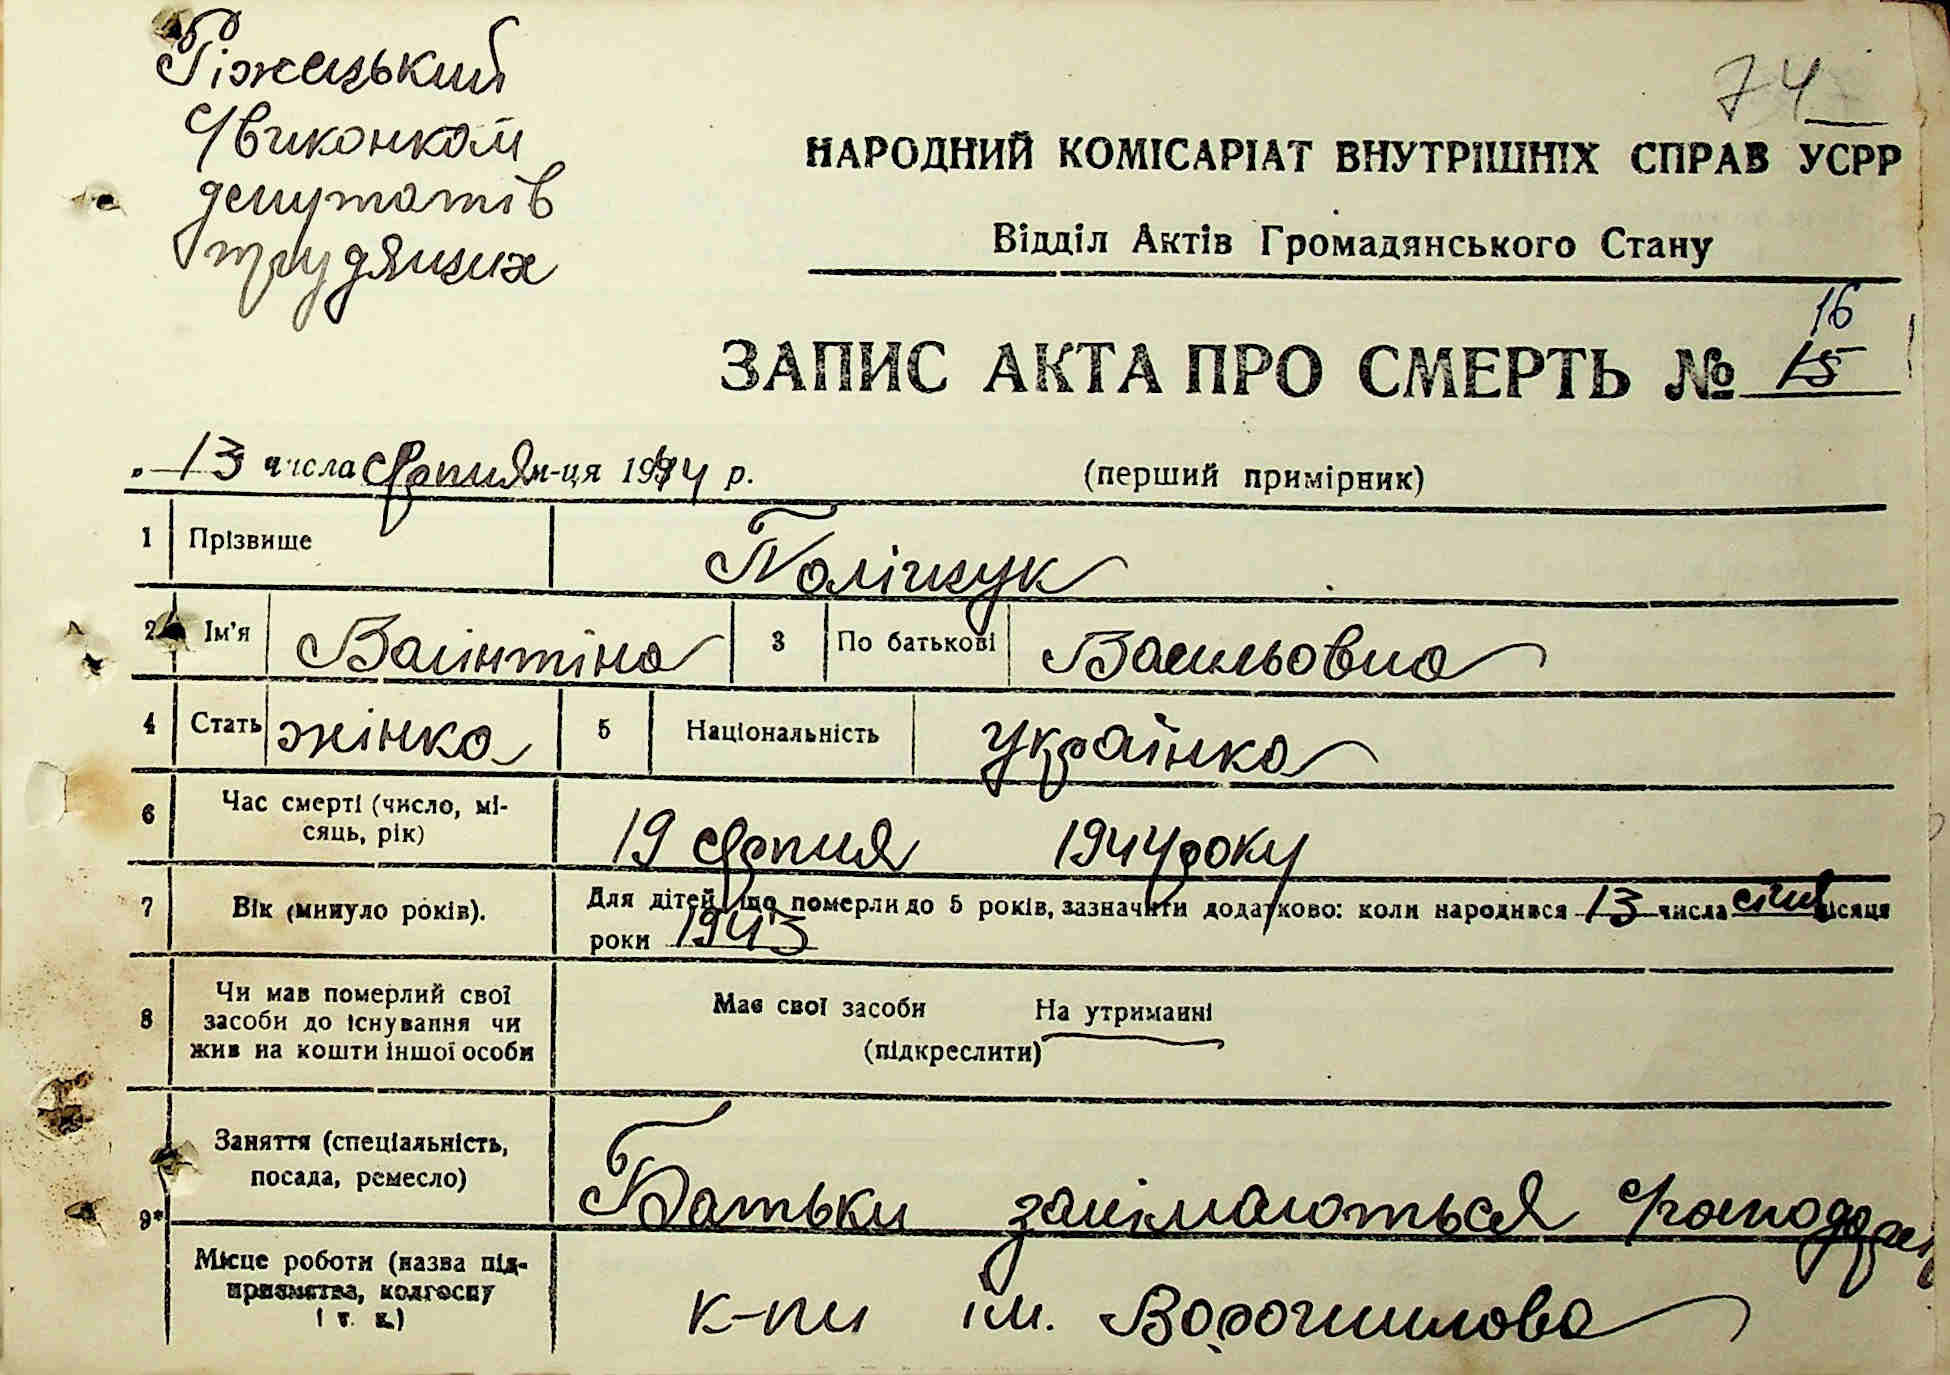 Ріжецький
виконком
депутатів
трудящих
74
НАРОДНИЙ КОМІСАРІАТ ВНУТРІШНІХ СПРАВ УСРР
Відділ Актів Громадянського Стану
16
ЗАПИС АКТА ПРО СМЕРТЬ № 15
„13 числа серпня м-ця 1944 р.
(перший примірник)
1 Прізвище Поліщук
2 Ім'я Валінтіна 3 По батькові Васильовна
4 Стать жінка 5 Національність українка
6 Час смерті (число, мі-
сяць, рік) 19 серпня 1944 року
7 Вік (минуло років). Для дітей, що померли до 5 років, зазначити додатково: коли народився 13 числа січня місяця
роки 1943
8 Чи мав померлий свої
засоби до існування чи
жив на кошти іншої особи
Має свої засоби На утриманні
(підкреслити)
9* Заняття (спеціальність,
посада, ремесло) Батьки занімаються
Місце роботи (назва під-
приємства, колгоспу
і т. і.) к-пи ім. Ворошилова